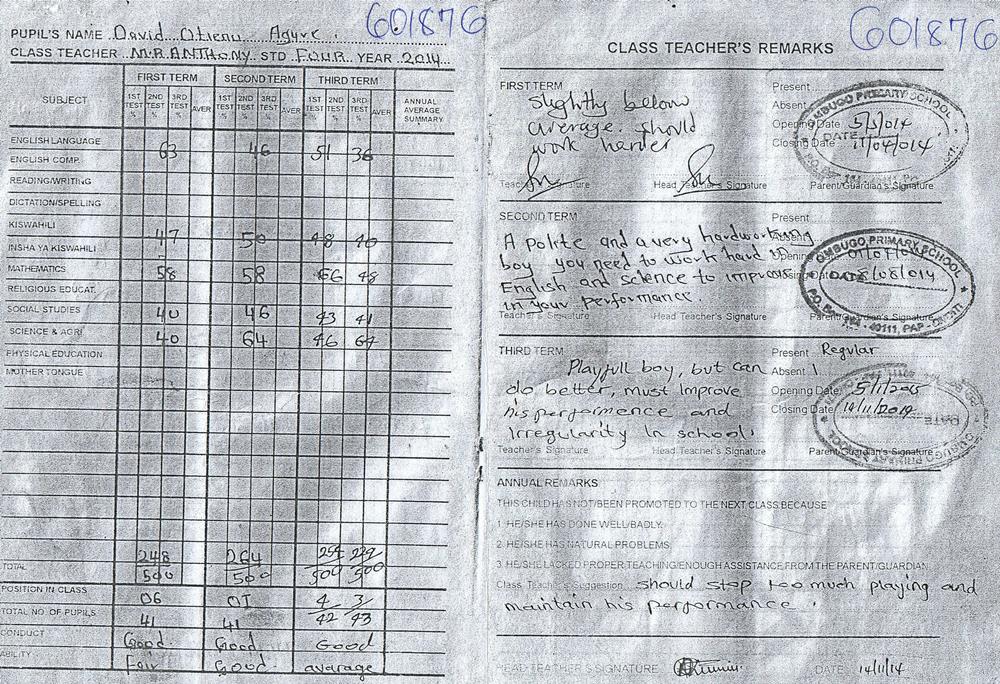 601876
PUPIL'S NAME David Otienu Aguve
CLASS TEACHER MR ANTHONY STD FOUR YEAR 2014
FIRST TERM SECOND TERM THIRD TERM
SUBJECT 1ST TEST % 2ND TEST % 3RD TEST % AVER 1ST TEST % 2ND TEST % 3RD TEST % AVER 1ST TEST % 2ND TEST % 3RD TEST % AVER ANNUAL AVERAGE SUMMARY
ENGLISH LANGUAGE
63 46 51 36
ENGLISH COMP.
READING/WRITING
DICTATION/SPELLING
KISWAHILI
47 50 48 40
INSHA YA KISWAHILI
MATHEMATICS 58 58 66 48
RELIGIOUS EDUCAT.
SOCIAL STUDIES 40 46 43 41
SCIENCE & AGRI 40 64 46 64
PHYSICAL EDUCATION
MOTHER TONGUE
248 264 254 229
TOTAL 500 500 500 500
POSITION IN CLASS 06 01 4 3
TOTAL NO. OF PUPILS 41 41 42 43
CONDUCT Good Good Good
ABILITY Fair Good avarage
601876
CLASS TEACHER'S REMARKS
FIRST TERM
Slightly below
average. Should
work harder
Teacher's Signature Head Teacher's Signature Parent/Guardian's Signature
Present
Absent
Opening Date 5/1/014
Closing Date 11/04/014
OMBUGO PRIMARY SCHOOL
DATE
SECOND TERM
A polite and a very hardworking
boy you need to work hard in
English and science to improve
in your performance.
Teacher's Signature Head Teacher's Signature Parent/Guardian's Signature
Present
OMBUGO PRIMARY SCHOOL
DATE /08/014
40111, PAP
THIRD TERM
Playfull boy, but can
do better, must improve
his performence and
Irregularity In school.
Teacher's Signature Head Teacher's Signature Parent/Guardian's Signature
Present Regular
Absent 1
Opening Date 5/1/2015
Closing Date 14/11/2014
DATE
ANNUAL REMARKS
THIS CHILD HAS NOT/BEEN PROMOTED TO THE NEXT CLASS BECAUSE
1. HE/SHE HAS DONE WELL/BADLY.
2. HE/SHE HAS NATURAL PROBLEMS
3. HE/SHE LACKED PROPER TEACHING/ENOUGH ASSISTANCE FROM THE PARENT/GUARDIAN.
Class Teacher's Suggestion Should stop too much playing and
maintain his performance.
HEAD TEACHER'S SIGNATURE DATE 14/11/14